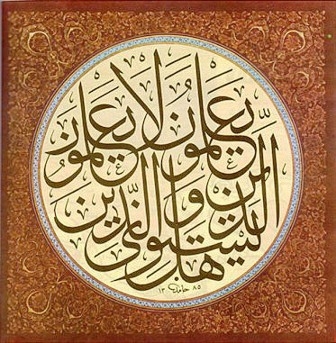 هَلْ يَسْتَوِى الَّذِينَ يَعْلَمُونَ وَالَّذِينَ لَا يَعْلَمُونَ
حامد ١٣٨٥